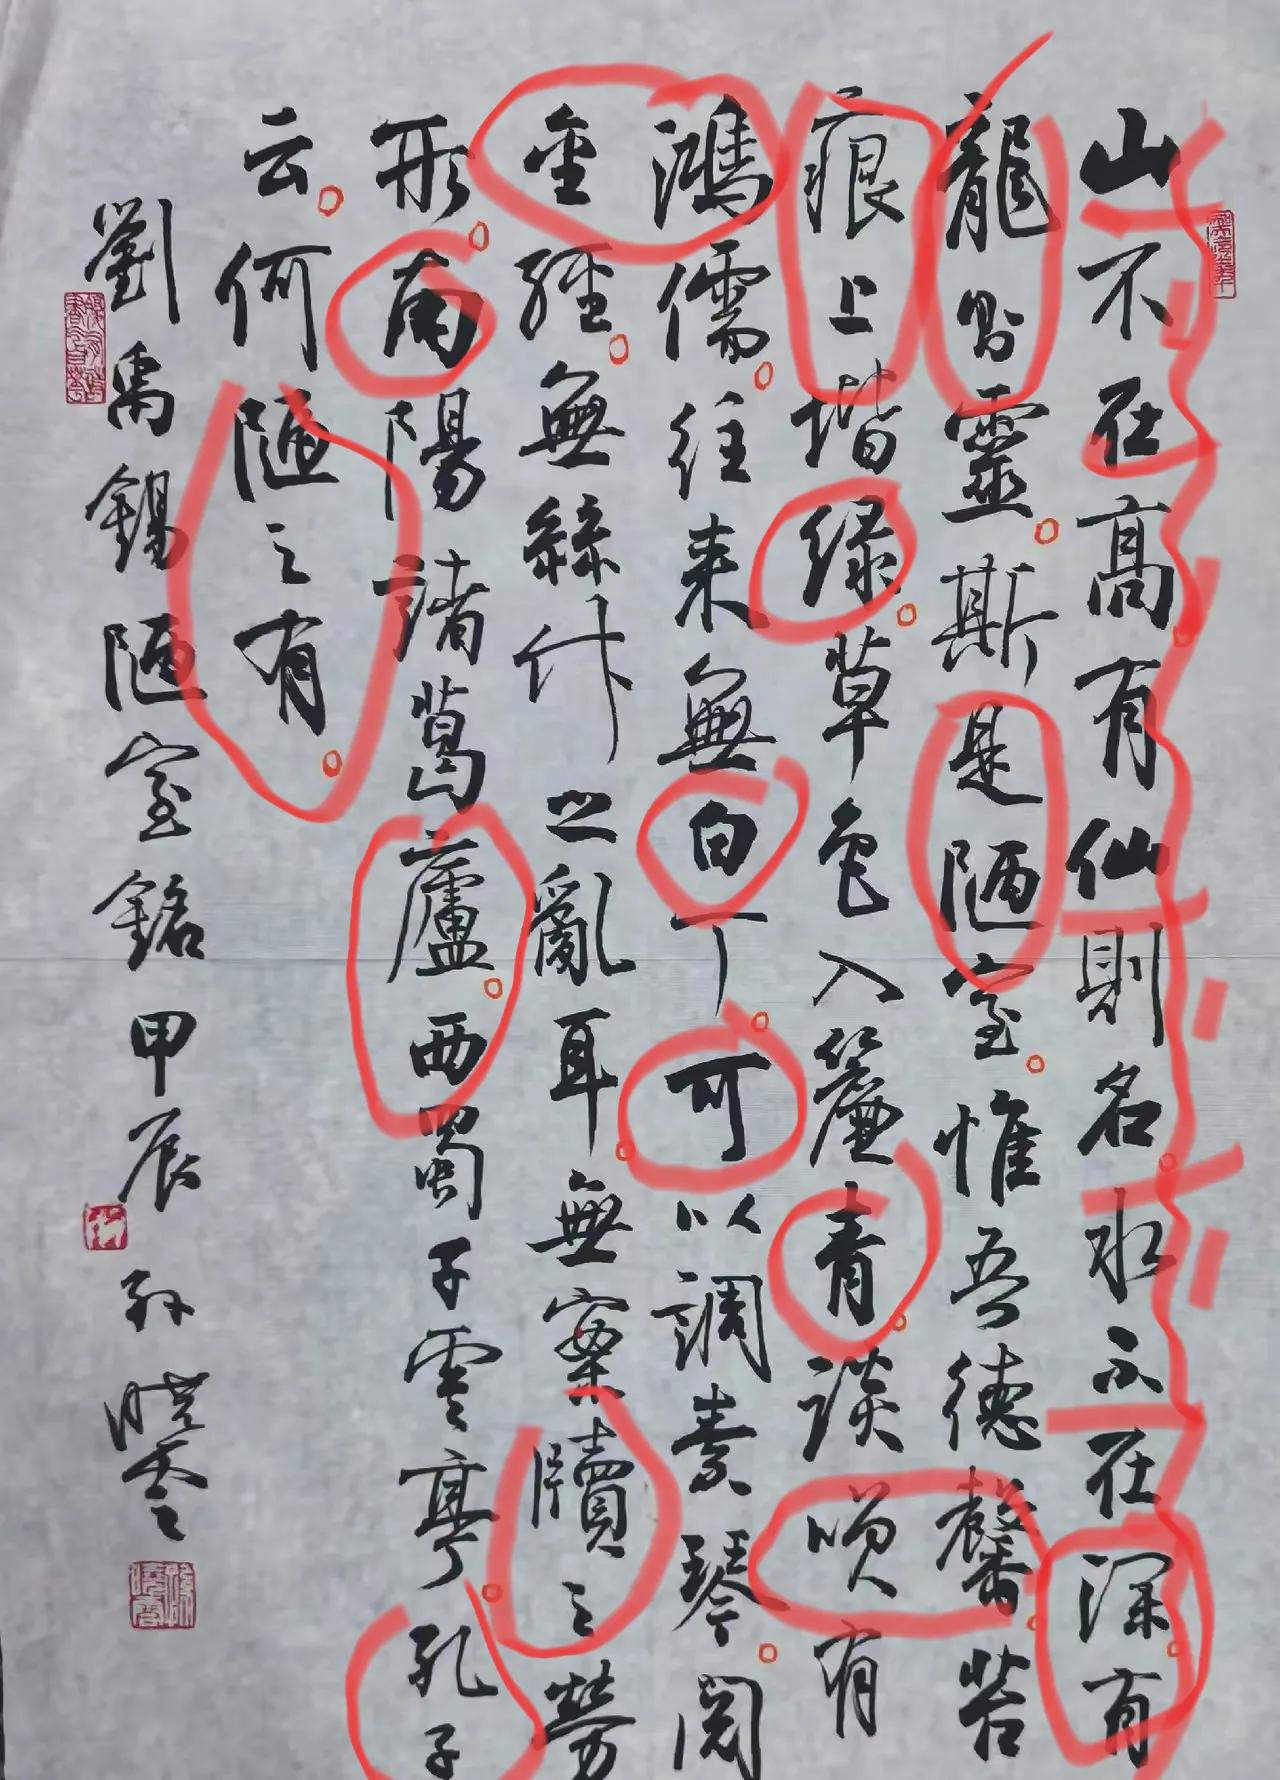 山不在高有仙則名水不在深有
龍則靈斯是陋室惟吾德馨苔
痕上堦綠草色入簾青談笑有
鴻儒往來無白丁可以調素琴閱
金經無絲竹之亂耳無案牘之勞
形南陽諸葛蘆西蜀子雲亭孔子
云何陋之有
劉禹錫陋室銘甲辰孫曉雲